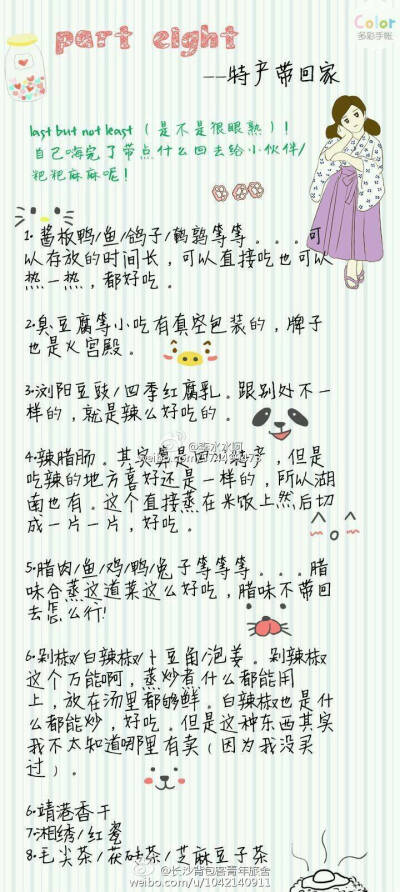 Color
多彩手帐
part eight
——特产带回家
last but not least（是不是很眼熟）！
自己嗨完了带点什么回去给小伙伴/
粑粑麻麻呢！
1.酱板鸭/鱼/鸽子/鹌鹑等等。。。可
以存放的时间长，可以直接吃也可以
热一热，都好吃。
2.臭豆腐等小吃有真空包装的，牌子
也是火宫殿。
3.浏阳豆豉/四季红腐乳。跟别处不一
样的，就是辣么好吃的。
4.辣腊肠。其实算是四川特产，但是
吃辣的地方喜好还是一样的，所以湖
南也有。这个直接蒸在米饭上然后切
成一片一片，好吃。
5.腊肉/鱼/鸡/鸭/兔子等等等。。。腊
味合蒸这道菜这么好吃，腊味不带回
去怎么行！
6.剁椒/白辣椒/十豆角/泡姜。剁辣椒
这个万能啊，蒸炒煮什么都能用
上，放在汤里都够鲜。白辣椒也是什
么都能炒，好吃。但是这种东西其实
我不太知道哪里有卖（因为我没买
过）。
6.靖港香干
7.湘绣/红瓷
8.毛尖茶/茯砖茶/芝麻豆子茶
@长沙背包客青年旅舍
weibo.com/u/1042140911